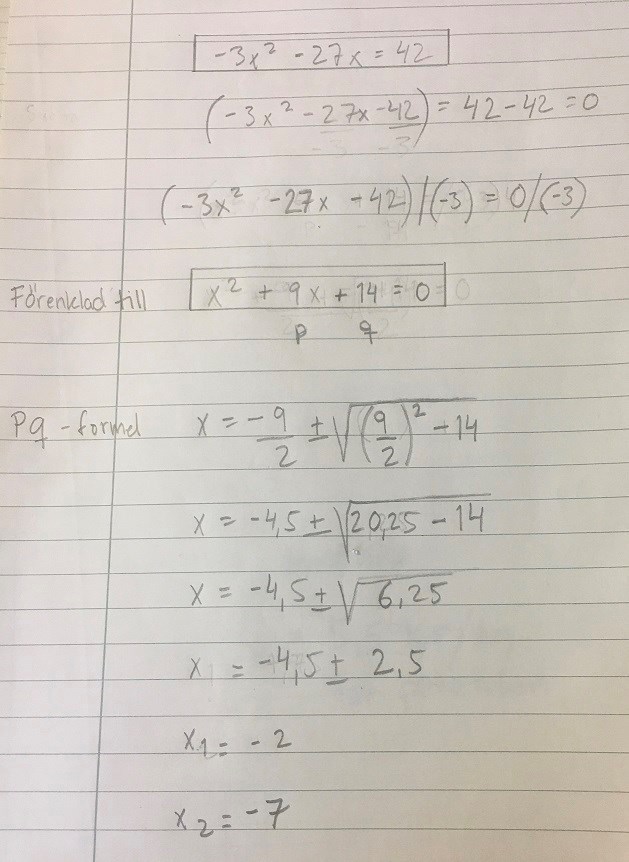 -3x² - 27x = 42
(-3x² - 27x - 42) = 42 - 42 = 0
(-3x² - 27x - 42)/(-3) = 0/(-3)
Förenklad till x² + 9x + 14 = 0
p q
Pq - formel x = -9/2 ± √((9/2)² - 14)
x = -4,5 ± √(20,25 - 14)
x = -4,5 ± √6,25
x = -4,5 ± 2,5
x₁ = -2
x₂ = -7